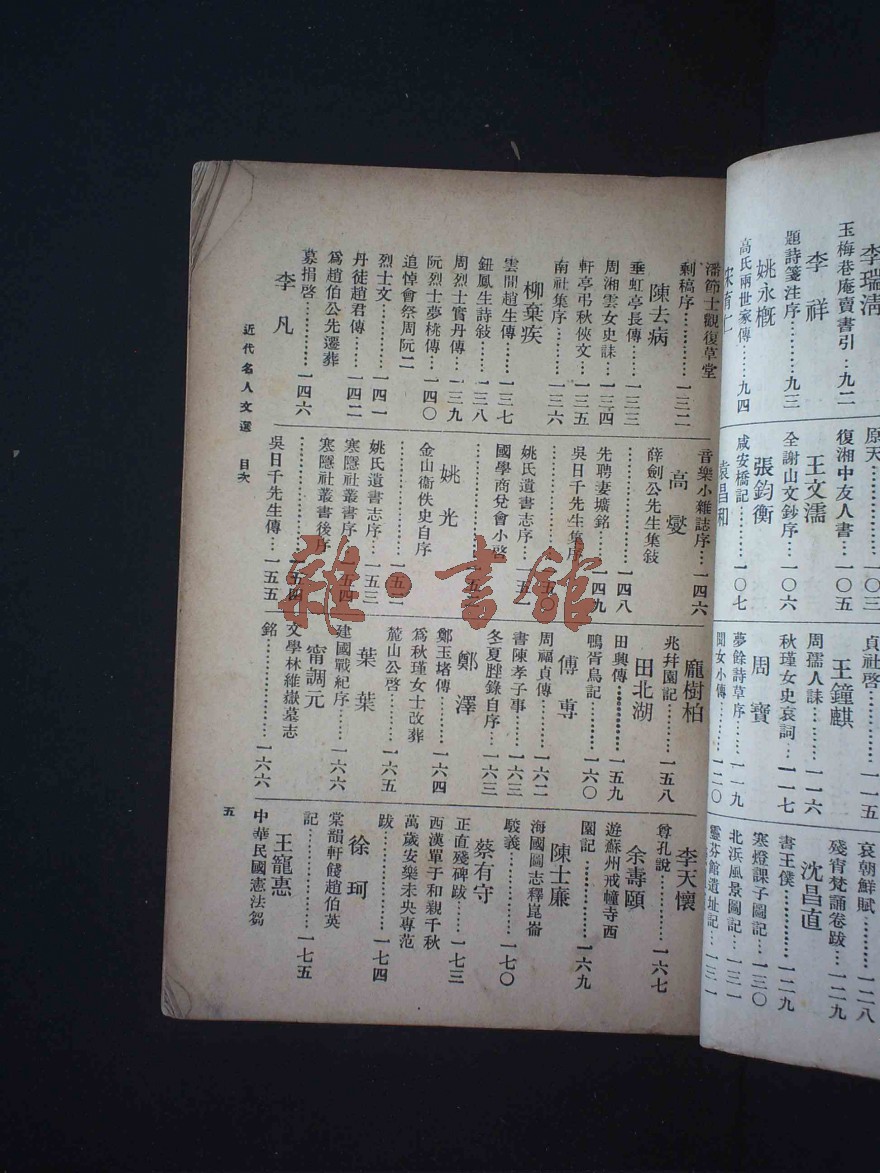 李瑞清
玉梅巷庵賣書引…九二
李祥
題詩箋注序……九三
姚永概
高氏兩世家傳…九四
原天
復湘中友人書…一〇五
王文濡
全謝山文鈔序…一〇六
張鈞衡
咸安橋記………一〇七
袁昌和
貞社啓
王鐘麒
周孺人誄………一一六
秋瑾女史哀詞…一一七
周實
夢餘詩草序……一一九
聞女小傳………一二〇
哀朝鮮賦………一二八
殘宵梵誦卷跋…一二九
沈昌直
書王僕…………一二九
寒燈課子圖記…一三〇
北浜風景圖記…一三一
靈芬館遺址記…一三一
潘節士觀復草堂
剩稿序…………一三二
陳去病
垂虹亭長傳……一三三
周湘雲女史誄…一三四
軒亭弔秋俠文…一三五
南社集序………一三六
柳棄疾
雲間趙生傳……一三七
鈕鳳生詩敍……一三八
周烈士實丹傳…一三九
阮烈士夢桃傳…一四〇
追悼會祭周阮二
烈士文…………一四一
丹徒趙君傳……一四二
爲趙伯公先遷葬
募捐啓…………一四六
李凡
音樂小雜誌序…一四六
高燮
薛劍公先生集敍
………………一四八
先聘妻壙銘……一四九
吳日千先生集序
………………一五〇
姚氏遺書志序…一五一
國學商兌會小啓
………………一五二
姚光
金山衞佚史自序
………………一五二
姚氏遺書志序…一五三
寒隱社叢書序…一五四
寒隱社叢書後序
………………一五四
吳日千先生傳…一五五
龐樹柏
兆幷園記………一五八
田北湖
田興傳…………一五九
鴨胥鳥記………一六〇
傅尃
周福貞傳………一六二
書陳孝子事……一六三
冬夏脞錄自序…一六三
鄭澤
鄭玉堦傳………一六四
爲秋瑾女士改葬
麓山公啓………一六五
葉葉
建國戰紀序……一六六
甯調元
文學林維嶽墓志
銘………………一六六
李天懷
尊孔說…………一六七
余壽頤
遊蘇州戒幢寺西
園記……………一六九
陳士廉
海國圖志釋崑崙
駁義……………一七〇
蔡有守
正直殘碑跋……一七三
西漢單于和親千秋
萬歲安樂未央專范
跋………………一七四
徐珂
棠韻軒餞趙伯英
記………………一七五
王寵惠
中華民國憲法芻
近代名人文選 目次
五
雜·書館